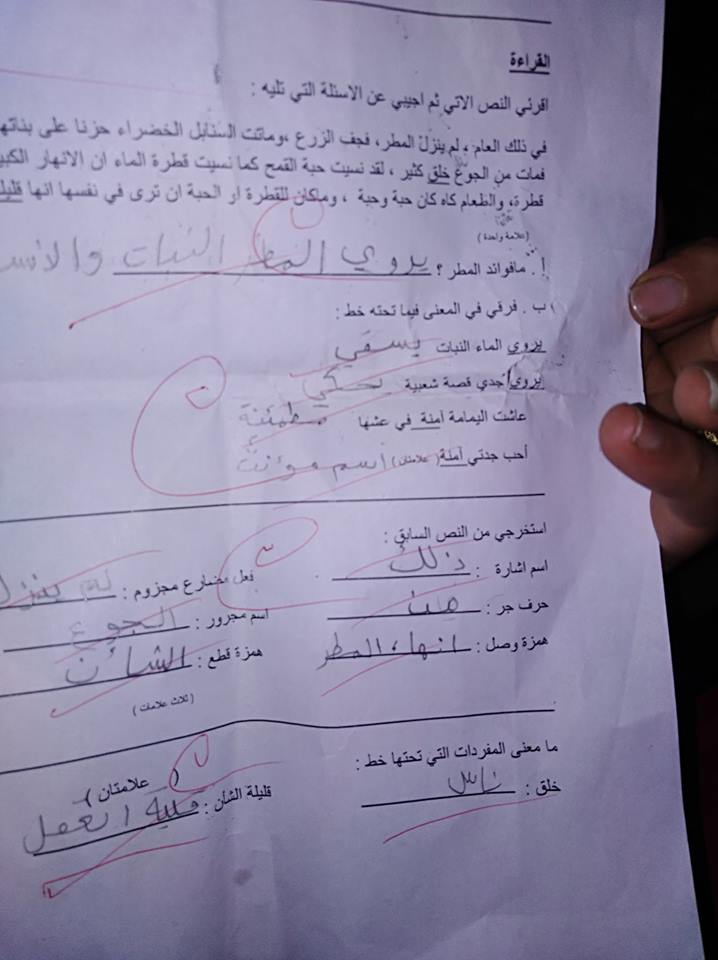 القراءة
اقرئي النص الاتي ثم اجيبي عن الاسئلة التي تليه :
في ذلك العام ، لم ينزل المطر، فجف الزرع ،وماتت السنابل الخضراء حزنا على بناتها
فمات من الجوع خلق كثير ، لقد نسيت حبة القمح كما نسيت قطرة الماء ان الانهار الكبي
قطرة، والطعام كله كان حبة وحبة ، وماكان للقطرة او الحبة ان ترى في نفسها انها قليلة
(علامة واحدة )
أ . مافوائد المطر ؟ يروي المطر النبات والأنس
ب . فرقي في المعنى فيما تحته خط :
يروي الماء النبات يسقي
يروي جدي قصة شعبية يحكي
عاشت اليمامة آمنة في عشها مطمئنة
أحب جدتي آمنة (علامتان) اسم مؤنث
استخرجي من النص السابق :
اسم اشارة : ذلك فعل مضارع مجزوم : لم ينزل
حرف جر : من اسم مجرور : الجوع
همزة وصل : انها ، المطر همزة قطع : الشائن
(ثلاث علامات )
ما معنى المفردات التي تحتها خط : ( علامتان )
خلق : ناس قليلة الشان : قليلة العقل